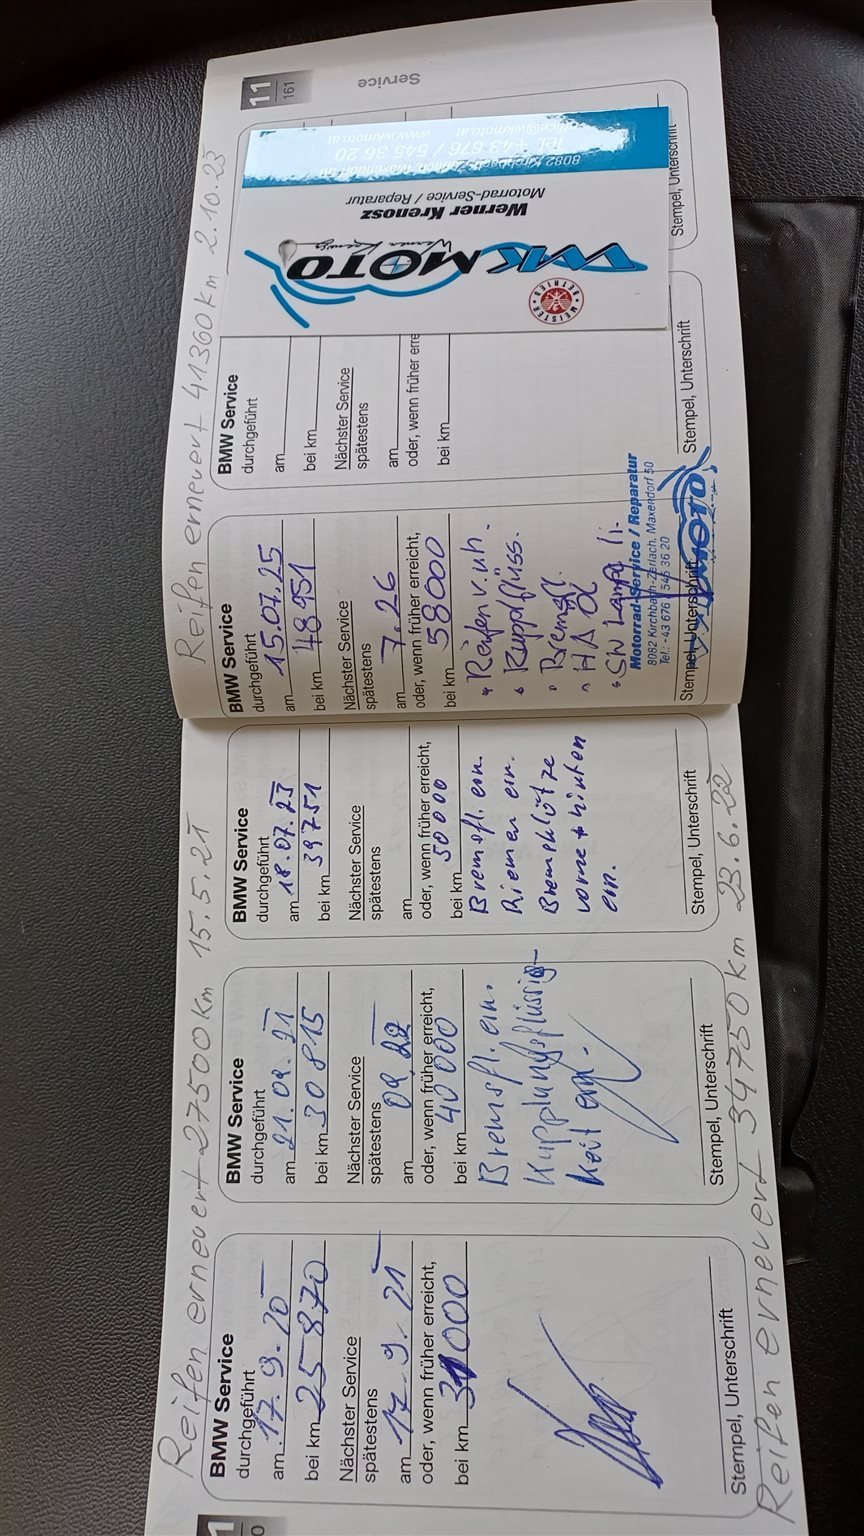 Reifen erneuert 27500 Km 15.5.21
BMW Service
durchgeführt
am 17.9.20
bei km 25870
Nächster Service
spätestens
am 17.9.21
oder, wenn früher erreicht,
bei km 31000
Stempel, Unterschrift
BMW Service
durchgeführt
am 21.09.21
bei km 30815
Nächster Service
spätestens
am 09.22
oder, wenn früher erreicht,
bei km 40000
Bremsfl. ern.
Kupplungsflüssig-
keit ern.
Stempel, Unterschrift
BMW Service
durchgeführt
am 18.07.23
bei km 39751
Nächster Service
spätestens
am
oder, wenn früher erreicht,
bei km 50000
Bremsfl. ern.
Riemen ern.
Bremsklötze
vorne + hinten
ern.
Stempel, Unterschrift
Reifen erneuert 34750 Km 23.6.22
Reifen erneuert 41360 Km 2.10.23
BMW Service
durchgeführt
am 15.07.25
bei km 48951
Nächster Service
spätestens
am 7.26
oder, wenn früher erreicht,
bei km 58000
• Reifen v. u. h.
• Kupplflüss.
• Bremsfl.
• HA Öl
• SW Lampe li.
Motorrad-Service / Reparatur
8082 Kirchbach-Zerlach, Maxendorf 50
Tel.: +43 676 / 545 36 20
MOTO
Stempel, Unterschrift
BMW Service
durchgeführt
am
bei km
Nächster Service
spätestens
am
oder, wenn früher erre
bei km
Stempel, Unterschrift
WKMOTO
Werner Krenosz
MEISTER BETRIEB
Werner Krenosz
Motorrad-Service / Reparatur
8082 Kirchbach-Zerlach, Maxendorf 50
Tel. +43 676 / 545 36 20
office@wkmoto.at www.wkmoto.at
Stempel, Unterschrift
Service
11
161
1
0